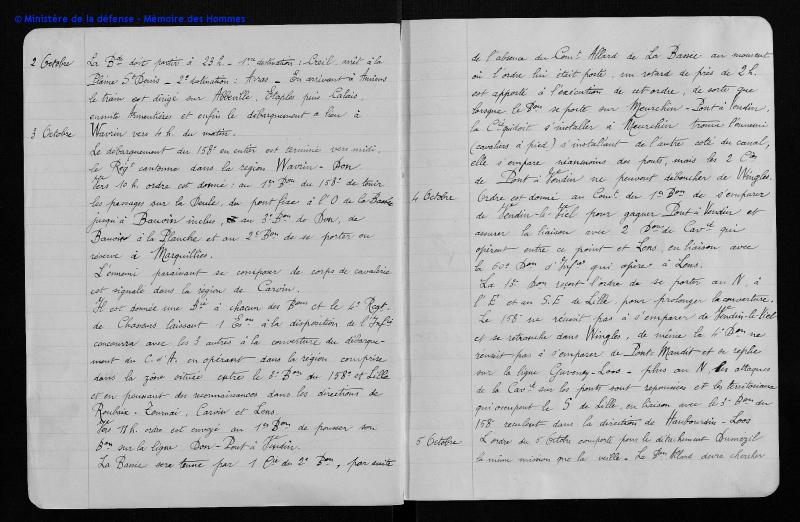 © Ministère de la défense - Mémoire des Hommes
2 Octobre La Bde doit partir à 23 h - 1ère destination : Creil, arrêt à la
Plaine St Denis - 2e destination : Arras - En arrivant à Amiens
le train est dirigé sur Abbeville, Etaples puis Calais,
ensuite Armentières et enfin le débarquement a lieu à
3 Octobre Wavrin vers 4 h. du matin.
Le débarquement du 158e en entier est terminé vers midi,
le Regt cantonne dans la région Wavrin - Don.
Vers 10 h. ordre est donné : au 1er Bon du 158e de tenir
les passages sur la Deule, du pont fixe à l'O de la Bassée
jusqu'à Bauvin inclus, au 3e Bon de Don, de
Bauvin à la Planche et au 2e Bon de se porter en
réserve à Marquillies.
L'ennemi paraissant se composer de corps de cavalerie
est signalé dans la région de Carvin.
Il est donnée une Bie à chacun des Bons et le 4e Regt
de Chasseurs laissant 1 Eon à la disposition de l'Infie
concourra avec les 3 autres à la couverture du débarque-
ment du C. d'A. en opérant dans la région comprise
dans la zône située entre le 3e Bon du 158e et Lille
et en poussant des reconnaissances dans les directions de
Roubaix - Tournai, Carvin et Lens.
Vers 11 h. ordre est envoyé au 1er Bon de pousser son
Bon sur la ligne Don - Pont à Vendin.
La Bassée sera tenue par 1 Cie du 2e Bon, par suite
de l'absence du Comt Allard de La Bassée au moment
où l'ordre lui était porté, un retard de près de 2 h.
est apporté à l'exécution de cet ordre, de sorte que
lorsque le Bon se porte sur Meurchin - Pont à Vendin,
la Cie qui doit s'installer à Meurchin trouve l'ennemi
(cavaliers à pied) s'installant de l'autre côté du canal,
elle s'empare néanmoins des ponts, mais les 2 Cies
de Pont à Vendin ne peuvent déboucher de Wingles.
4 Octobre Ordre est donné au Comt du 1er Bon de s'emparer
de Vendin-le-Vieil pour gagner Pont à Vendin et
assurer la liaison avec 2 de Cavie qui
opèrent entre ce point et Lens, en liaison avec
la 60e d'Infie qui opère à Lens.
La 13e reçoit l'ordre de se porter au N, à
l'E et au S.E de Lille pour prolonger la couverture.
Le 158e ne réussit pas à s'emparer de Vendin-le-Vieil
et se retranche dans Wingles, de même la 4e ne
réussit pas à s'emparer de Pont Maudit et se replie
sur la ligne - Loos - plus au N, les attaques
de la Cavie sur les ponts sont repoussées et les territoriaux
qui occupent le S de Lille, en liaison avec le 3e Bon du
158e reculent dans la direction de Haubourdin - Loos
5 Octobre L'ordre du 5 Octobre comporte pour le détachement
la même mission que la veille - Le Bon Allard devra chercher